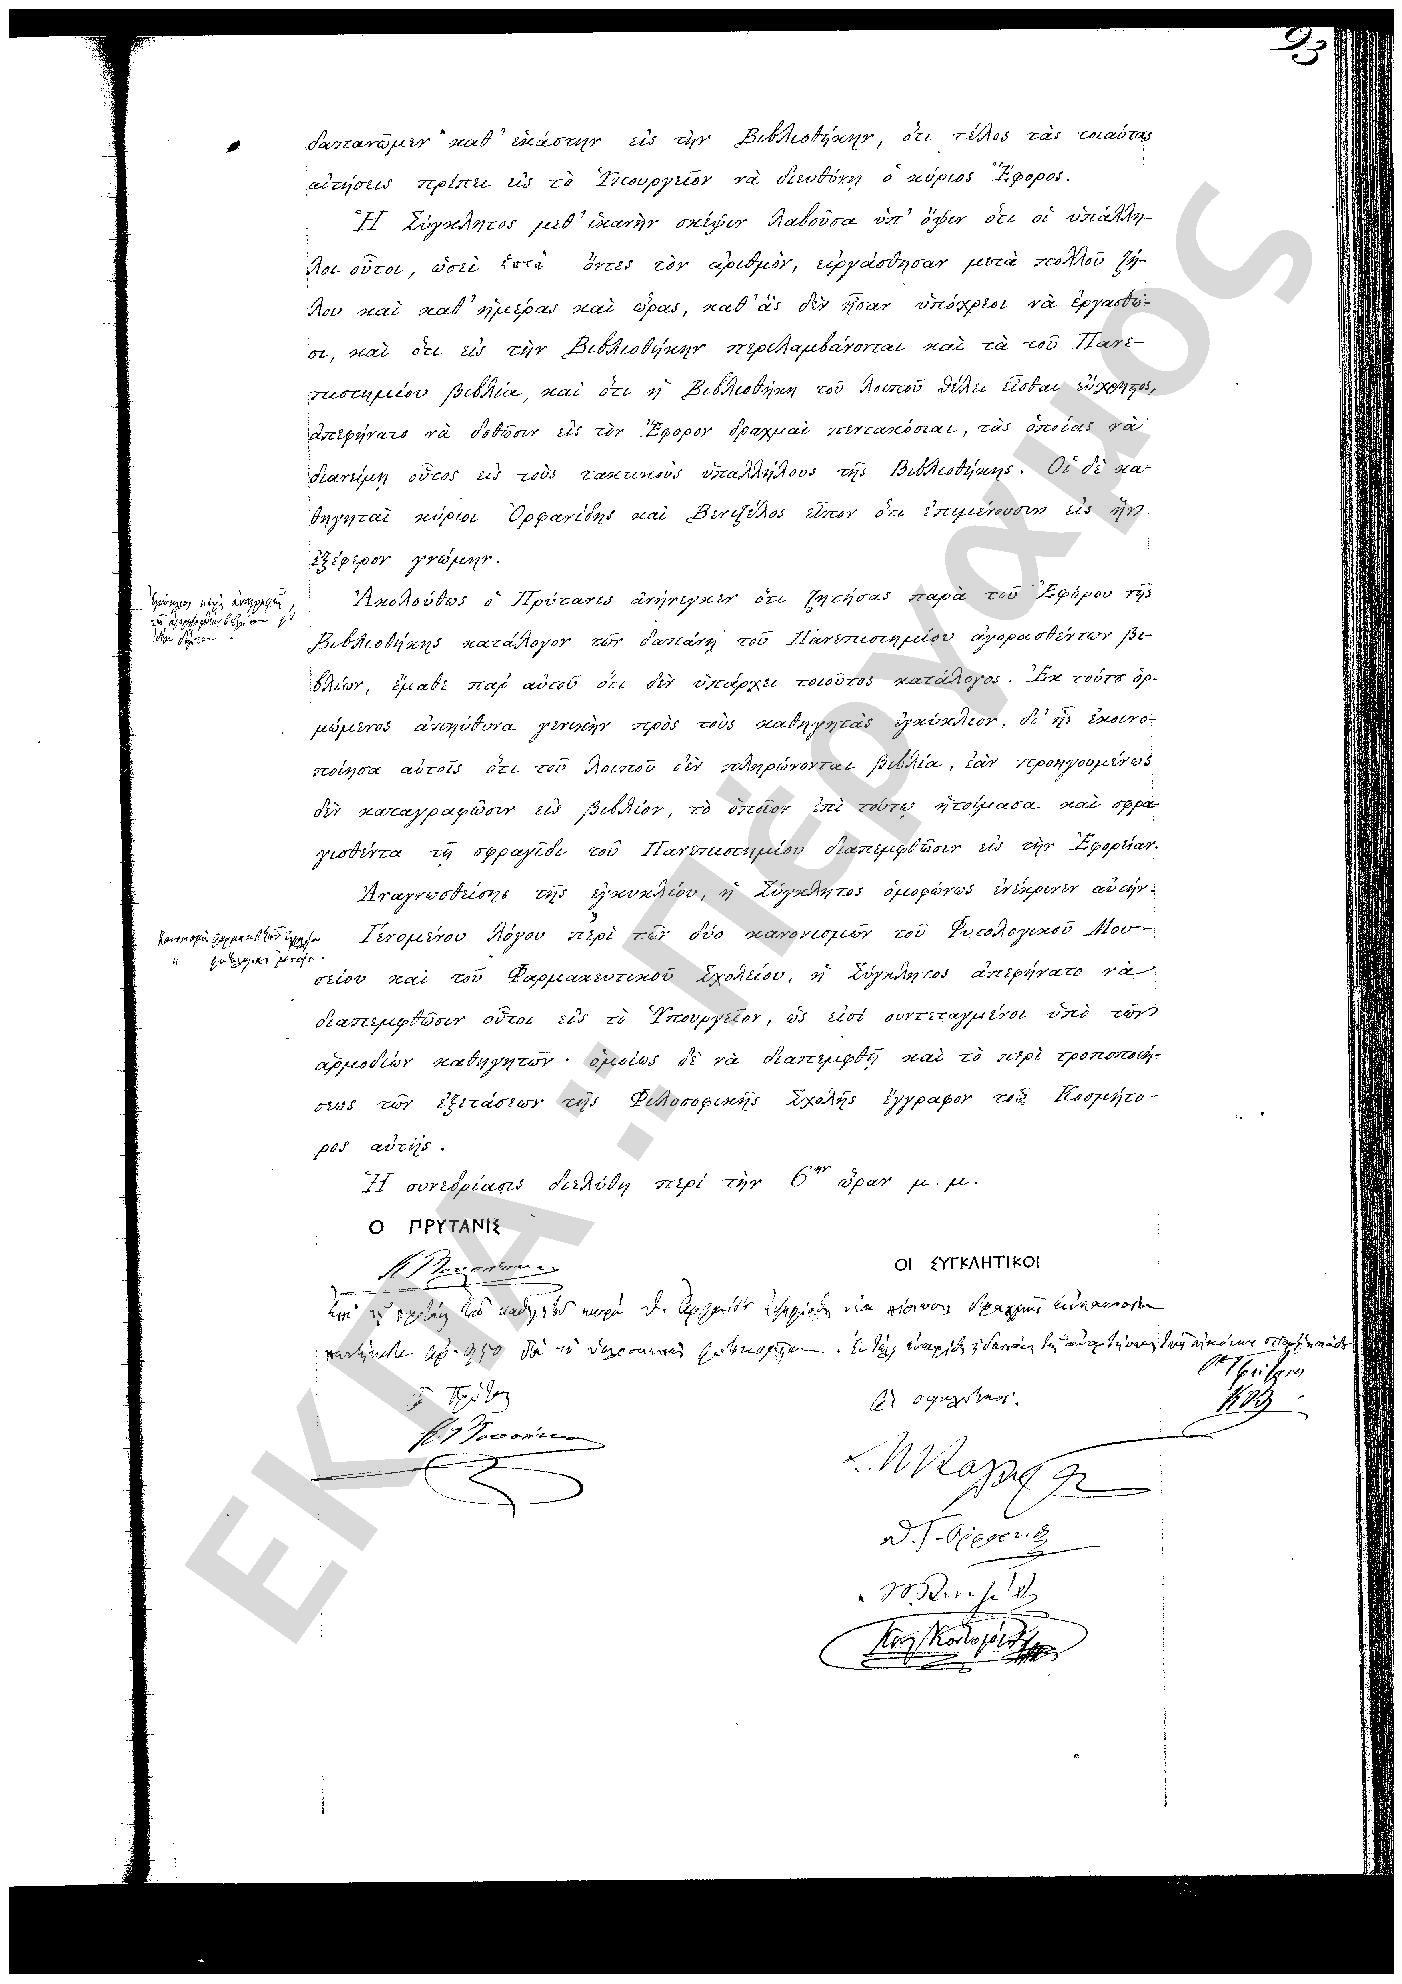 93
δαπανῶμεν καθ' ἑκάστην εἰς τὴν Βιβλιοθήκην, ὅτι τέλος τὰς τοιαύτας
αἰτήσεις πρέπει εἰς τὸ Ὑπουργεῖον νὰ διευθύνῃ ὁ κύριος Ἔφορος.
Ἡ Σύγκλητος μεθ' ἱκανὴν σκέψιν λαβοῦσα ὑπ' ὄψιν ὅτι οἱ ὑπάλλη-
λοι οὗτοι, ὡσεὶ ἑπτὰ ὄντες τὸν ἀριθμόν, εἰργάσθησαν μετὰ πολλοῦ ζή-
λου καὶ καθ' ἡμέρας καὶ ὥρας, καθ' ἃς δὲν ἦσαν ὑπόχρεοι νὰ ἐργασθῶ-
σι, καὶ ὅτι εἰς τὴν Βιβλιοθήκην περιλαμβάνονται καὶ τὰ τοῦ Πανε-
πιστημίου βιβλία, καὶ ὅτι ἡ Βιβλιοθήκη τοῦ λοιποῦ θέλει εἶσθαι εὔχρηστος,
ἀπεφήνατο νὰ δοθῶσιν εἰς τὸν Ἔφορον δραχμαὶ πεντακόσιαι, τὰς ὁποίας νὰ
διανείμῃ οὗτος εἰς τοὺς τακτικοὺς ὑπαλλήλους τῆς Βιβλιοθήκης. Οἱ δὲ κα-
θηγηταὶ κύριοι Ὀρφανίδης καὶ Βενιζέλος εἶπον ὅτι ἐπιμένουσιν εἰς ἣν
ἐξέφερον γνώμην.
Ἀκολούθως ὁ Πρύτανις ἀνήνεγκεν ὅτι ζητήσας παρὰ τοῦ Ἐφόρου τῆς
Βιβλιοθήκης κατάλογον τῶν δαπάνῃ τοῦ Πανεπιστημίου ἀγορασθέντων βι-
βλίων, ἔμαθε παρ' αὐτοῦ ὅτι δὲν ὑπάρχει τοιοῦτος κατάλογος. Ἐκ τούτου ὁρ-
μώμενος ἀπηύθυνα γενικὴν πρὸς τοὺς καθηγητὰς ἐγκύκλιον, δι' ἧς ἐκοινο-
ποίησα αὐτοῖς ὅτι τοῦ λοιποῦ δὲν πληρώνονται βιβλία, ἐὰν προηγουμένως
δὲν καταγραφῶσιν εἰς βιβλίον, τὸ ὁποῖον ἐπὶ τούτῳ ἡτοίμασα καὶ σφρα
γισθέντα τῇ σφραγῖδι τοῦ Πανεπιστημίου διαπεμφθῶσιν εἰς τὴν Ἐφορείαν.
Ἀναγνωσθείσης τῆς ἐγκυκλίου, ἡ Σύγκλητος ὁμοφώνως ἐνέκρινεν αὐτήν.
Γενομένου λόγου περὶ τῶν δύο κανονισμῶν τοῦ Φυτολογικοῦ Μου-
σείου καὶ τοῦ Φαρμακευτικοῦ Σχολείου, ἡ Σύγκλητος ἀπεφήνατο νὰ
διαπεμφθῶσιν οὗτοι εἰς τὸ Ὑπουργεῖον, ὡς εἰσὶ συντεταγμένοι ὑπὸ τῶν
ἁρμοδίων καθηγητῶν· ὁμοίως δὲ νὰ διαπεμφθῇ καὶ τὸ περὶ τροποποιή-
σεως τῶν ἐξετάσεων τῆς Φιλοσοφικῆς Σχολῆς ἔγγραφον τοῦ Κοσμήτο-
ρος αὐτῆς.
Ἡ συνεδρίασις διελύθη περὶ τὴν 6ην ὥραν μ. μ.
Ο ΠΡΥΤΑΝΙΣ
ΟΙ ΣΥΓΚΛΗΤΙΚΟΙ
ΕΚΠΑ :: Πέργαμος